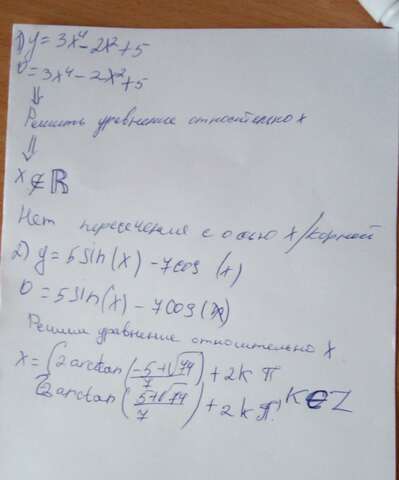 1) y = 3x⁴ - 2x² + 5
0 = 3x⁴ - 2x² + 5
⇓
Решить уравнение относительно x
⇓
x ∉ R
Нет пересечения с осью x/корней
2) y = 5sin(x) - 7cos(x)
0 = 5sin(x) - 7cos(x)
Решим уравнение относительно x
x = { 2arctan(-5+√74/7) + 2kπ
2arctan(5+√74/7) + 2kπ, k∈Z